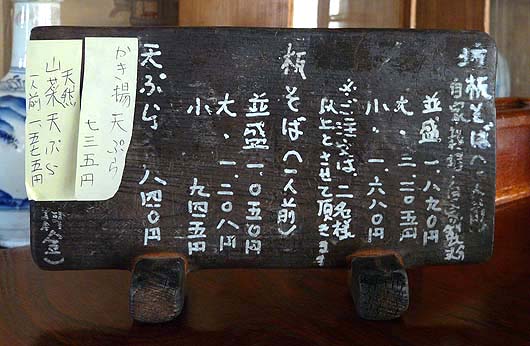 板そば(一人前
自家栽培・自家製粉
並盛 一、八九〇円
大・二、二〇五円
小・一、六八〇円
※ご注文は、二名様
以上とさせて頂きます
板そば(一人前)
並盛 一、〇五〇円
大・一、二〇八円
小 九四五円
天ぷら 八四〇円
かき揚天ぷら
七三五円
天然
山菜天ぷら
一人前 一五七五円